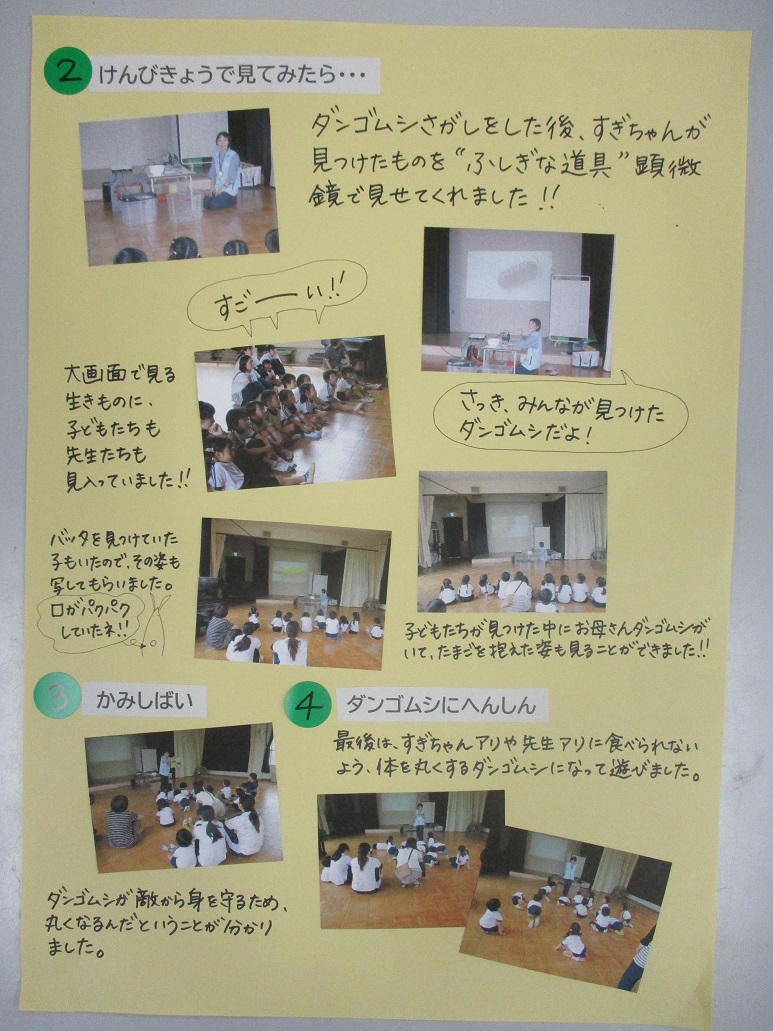 2 けんびきょうで見てみたら・・・
ダンゴムシさがしをした後、すぎちゃんが
見つけたものを“ふしぎな道具”顕微
鏡で見せてくれました!!
すごーい!!
さっき、みんなが見つけた
ダンゴムシだよ!
大画面で見る
生きものに、
子どもたちも
先生たちも
見入っていました!!
バッタを見つけていた
子もいたので、その姿も
写してもらいました。
口がパクパク
していたネ!!
子どもたちが見つけた中にお母さんダンゴムシが
いて、たまごを抱えた姿も見ることができました!!
3 かみしばい
ダンゴムシが敵から身を守るため、
丸くなるんだということが分かり
ました。
4 ダンゴムシにへんしん
最後は、すぎちゃんアリや先生アリに食べられない
よう、体を丸くするダンゴムシになって遊びました。